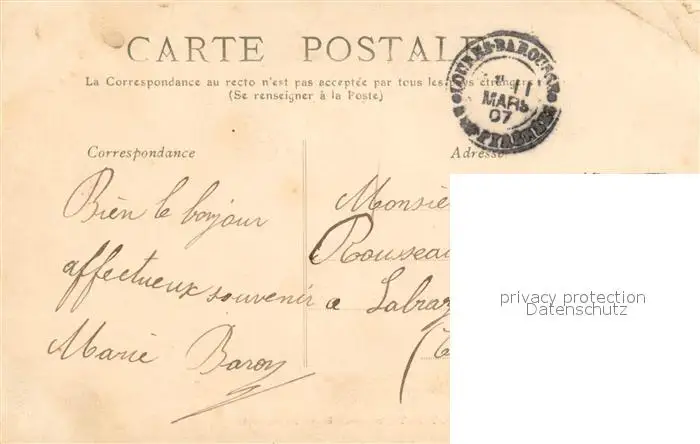 CARTE POSTALE
La Correspondance au recto n'est pas acceptée par tous les pays étrangers
(Se renseigner à la Poste)
LOURES-BAROUSSE
11
MARS
07
PYRENEES
Correspondance
Adresse
Bien le bonjour
affectueux souvenir
Marie Baron
Monsie
Rousseau
a Labraz
privacy protection
Datenschutz